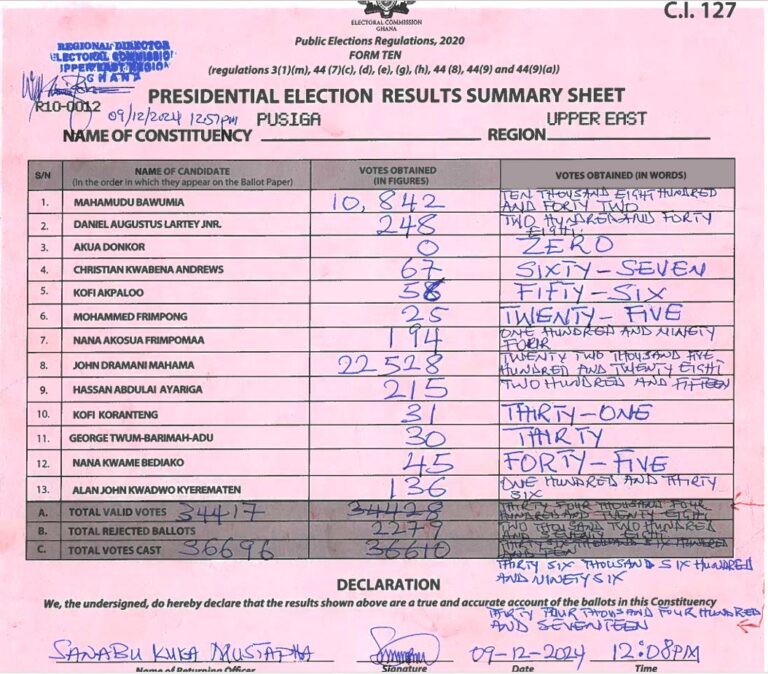 C.I. 127
ELECTORAL COMMISSION
GHANA
Public Elections Regulations, 2020
FORM TEN
(regulations 3(1)(m), 44 (7)(c), (d), (e), (g), (h), 44 (8), 44(9) and 44(9)(a))
REGIONAL DIRECTOR
ELECTORAL COMMISSION
UPPER EAST REGION
GHANA
R10-0012
09/12/2024 12:57pm
PRESIDENTIAL ELECTION RESULTS SUMMARY SHEET
NAME OF CONSTITUENCY PUSIGA REGION UPPER EAST
S/N NAME OF CANDIDATE VOTES OBTAINED VOTES OBTAINED (IN WORDS)
(In the order in which they appear on the Ballot Paper) (IN FIGURES)
1. MAHAMUDU BAWUMIA 10,842 TEN THOUSAND EIGHT HUNDRED
AND FORTY TWO
2. DANIEL AUGUSTUS LARTEY JNR. 248 TWO HUNDRED AND FORTY
EIGHT
3. AKUA DONKOR 0 ZERO
4. CHRISTIAN KWABENA ANDREWS 67 SIXTY-SEVEN
5. KOFI AKPALOO 56 FIFTY-SIX
6. MOHAMMED FRIMPONG 25 TWENTY-FIVE
7. NANA AKOSUA FRIMPOMAA 194 ONE HUNDRED AND NINETY
FOUR
8. JOHN DRAMANI MAHAMA 22528 TWENTY TWO THOUSAND FIVE
HUNDRED AND TWENTY EIGHT
9. HASSAN ABDULAI AYARIGA 215 TWO HUNDRED AND FIFTEEN
10. KOFI KORANTENG 31 THIRTY-ONE
11. GEORGE TWUM-BARIMAH-ADU 30 THIRTY
12. NANA KWAME BEDIAKO 45 FORTY-FIVE
13. ALAN JOHN KWADWO KYEREMATEN 136 ONE HUNDRED AND THIRTY
SIX
A. TOTAL VALID VOTES 34417 34428 THIRTY FOUR THOUSAND FOUR
HUNDRED AND TWENTY EIGHT
B. TOTAL REJECTED BALLOTS 2279 TWO THOUSAND TWO HUNDRED
AND SEVENTY
C. TOTAL VOTES CAST 36696 36610 THIRTY SIX THOUSAND SIX HUNDRED
AND TEN
THIRTY SIX THOUSAND SIX HUNDRED
AND NINETY SIX
DECLARATION
We, the undersigned, do hereby declare that the results shown above are a true and accurate account of the ballots in this Constituency
THIRTY FOUR THOUSAND FOUR HUNDRED
AND SEVENTEEN
SANABU KUKA MUSTAPHA 09-12-2024 12:08PM
Name of Returning Officer Signature Date Time